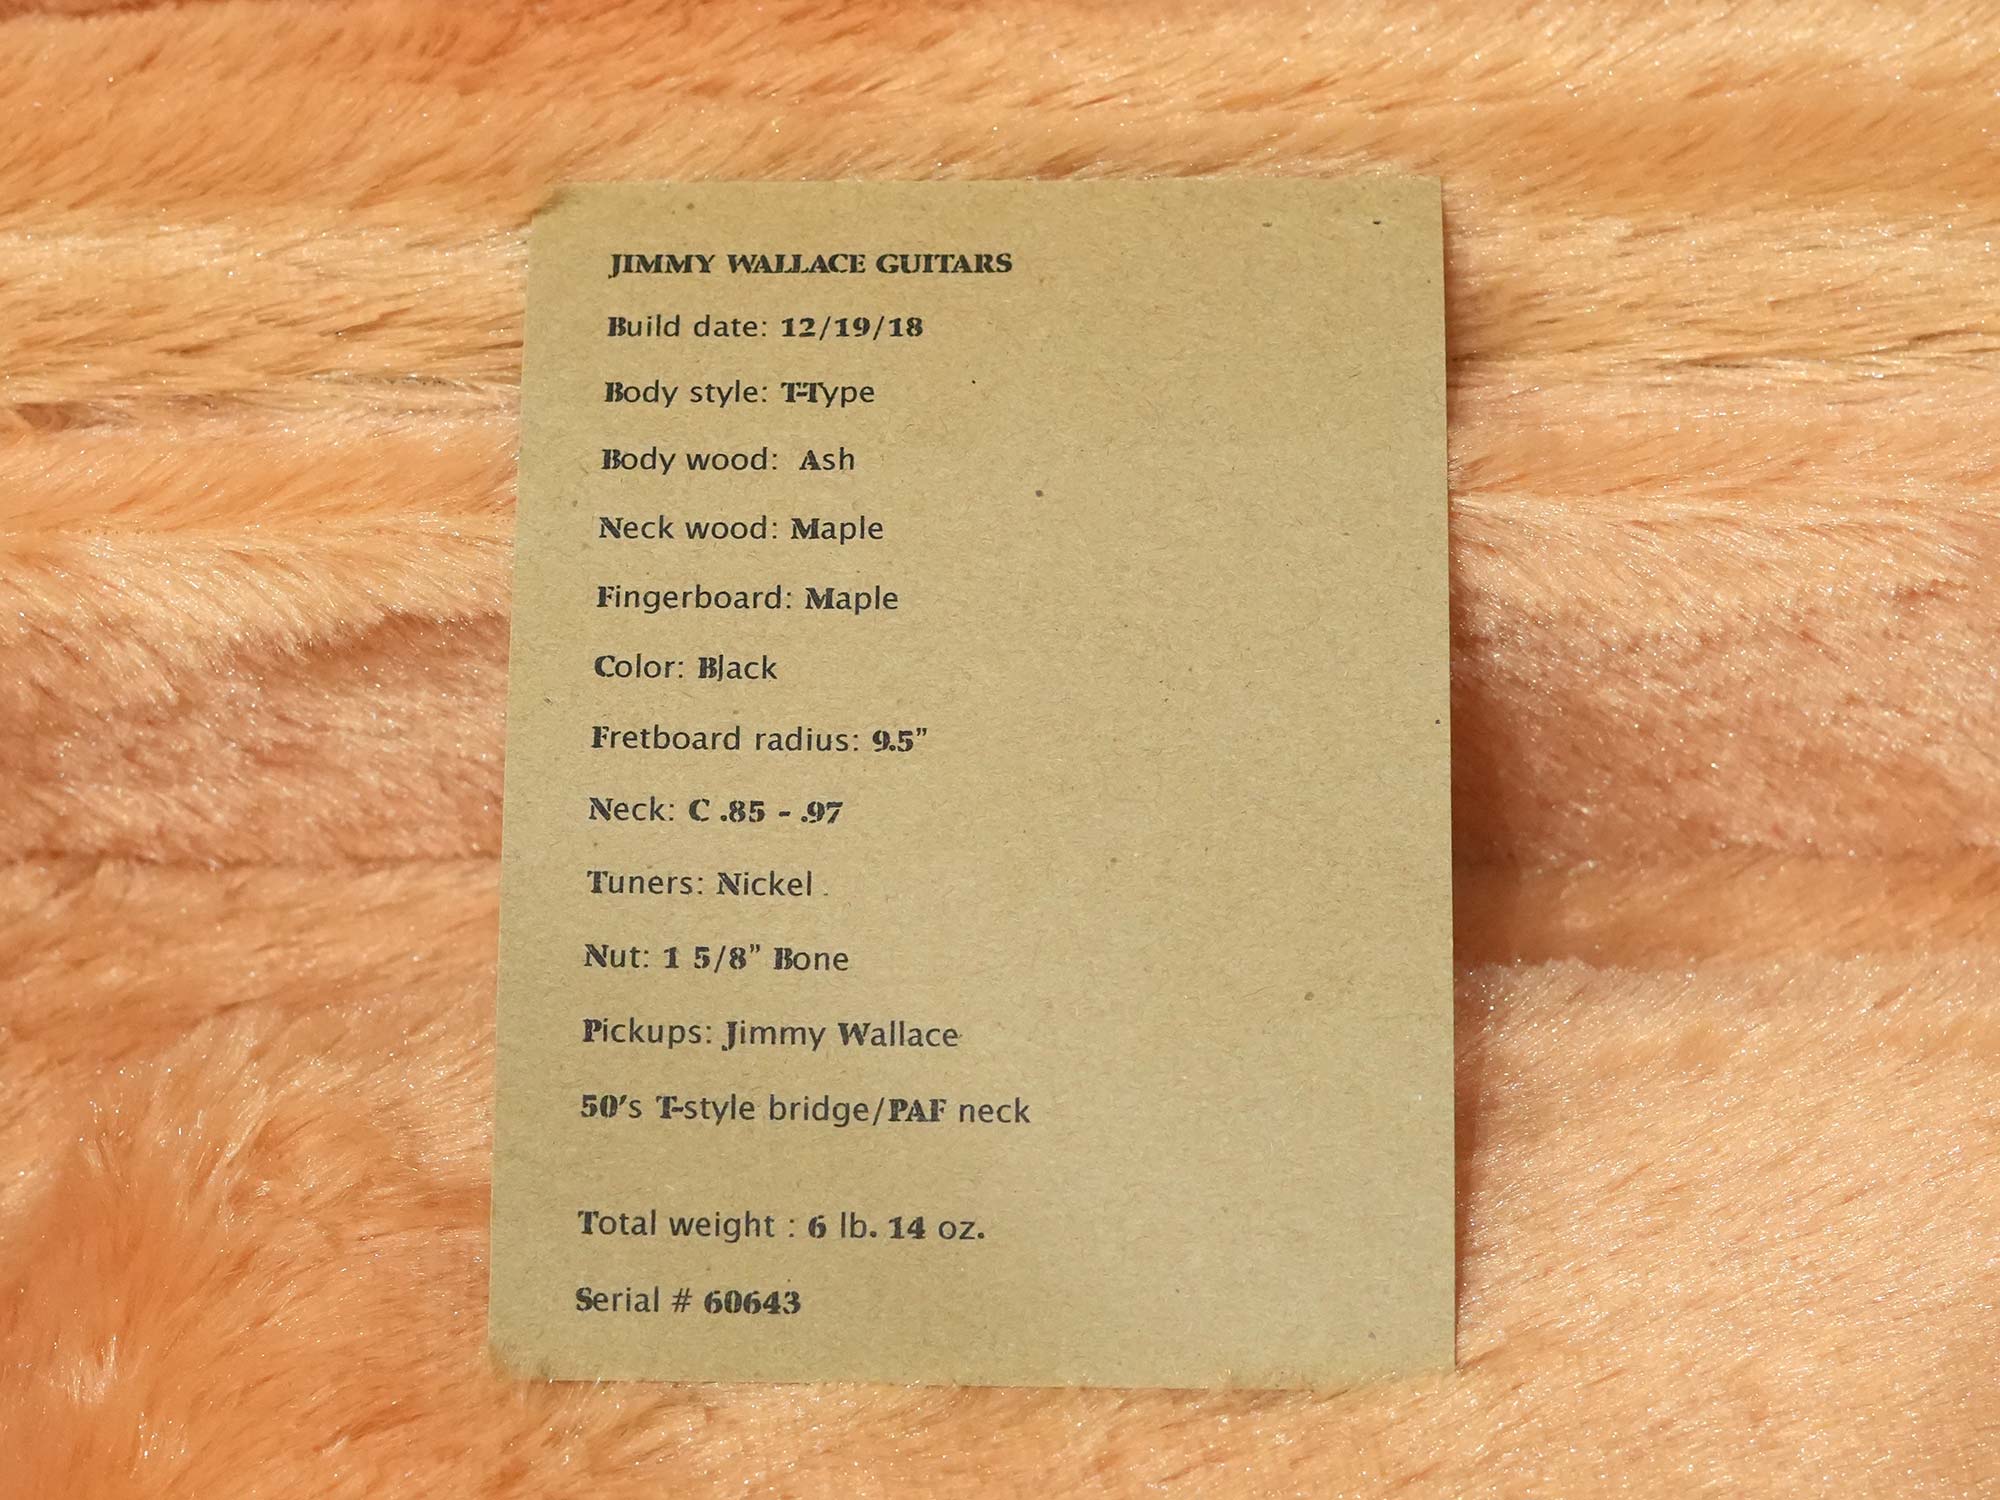 JIMMY WALLACE GUITARS
Build date: 12/19/18
Body style: T-Type
Body wood: Ash
Neck wood: Maple
Fingerboard: Maple
Color: Black
Fretboard radius: 9.5”
Neck: C .85 - .97
Tuners: Nickel
Nut: 1 5/8” Bone
Pickups: Jimmy Wallace
50’s T-style bridge/PAF neck
Total weight : 6 lb. 14 oz.
Serial # 60643